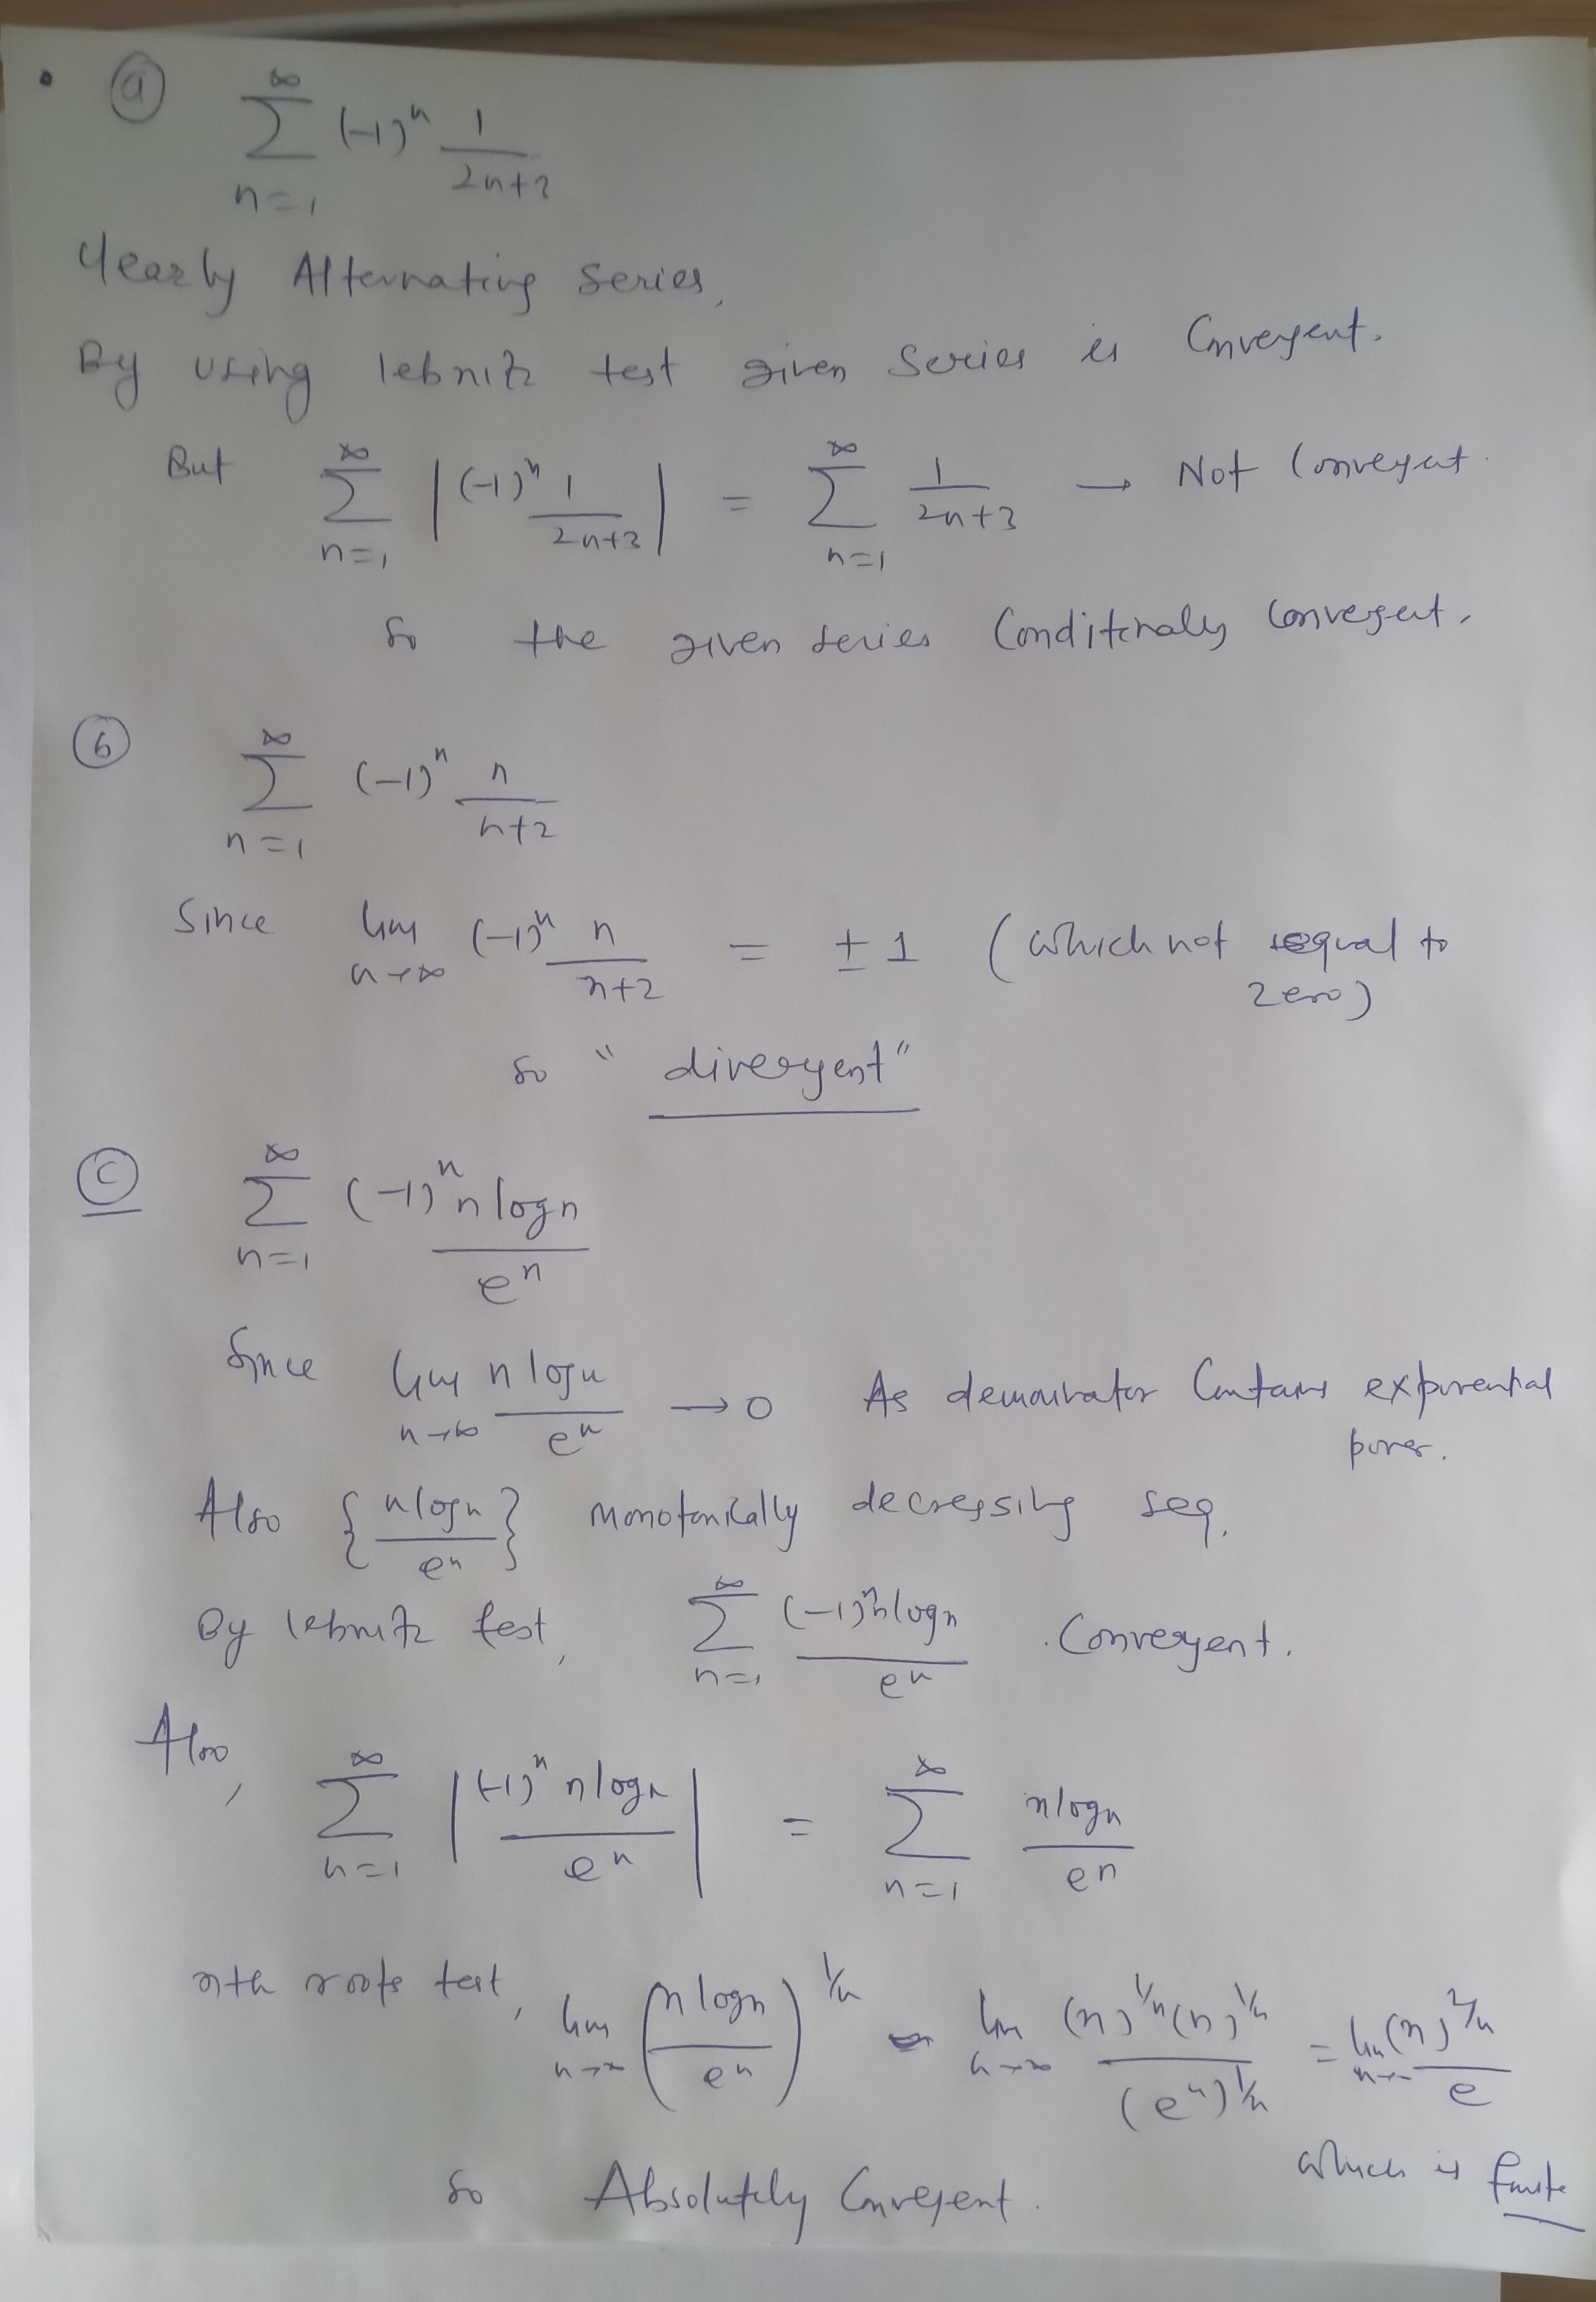 (a) ∑_{n=1}^{∞} (-1)^n 1/(2n+3)
Alternating series,
By using lebnitz test given series is Convergent.
But ∑_{n=1}^{∞} |(-1)^n 1/(2n+3)| = ∑_{n=1}^{∞} 1/(2n+3) → Not Convergent.
So the given series Conditinaly Convergent.
(b) ∑_{n=1}^{∞} (-1)^n n/(n+2)
Since lim_{n→∞} (-1)^n n/(n+2) = ±1 (which not equal to
zero)
So "divergent"
(c) ∑_{n=1}^{∞} (-1)^n n log n / e^n
Since lim_{n→∞} n log n / e^n → 0 As denominator Contains exponential
power.
Also {n log n / e^n} monotonically decressing seq.
By lebnitz test, ∑_{n=1}^{∞} (-1)^n n log n / e^n Convergent.
Also, ∑_{n=1}^{∞} |(-1)^n n log n / e^n| = ∑_{n=1}^{∞} n log n / e^n
nth roots test, lim_{n→∞} (n log n / e^n)^{1/n} = lim_{n→∞} (n)^{1/n} (n)^{1/n} / (e^n)^{1/n} = lim_{n→∞} (n)^{2/n} / e
which is finite
So Absolutely Convergent.